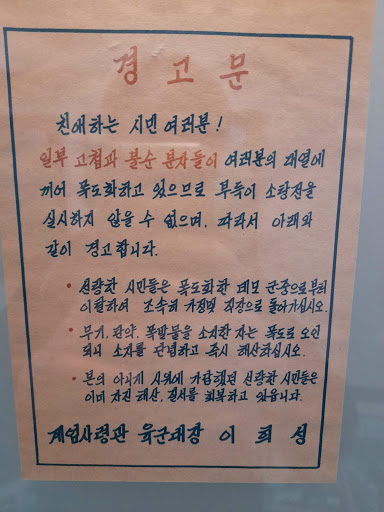 경고문
친애하는 시민 여러분!
일부 고첩과 불순 분자들이 여러분의 대열에
끼어 폭도화하고 있으므로 부득이 소탕전을
실시하지 않을 수 없으며, 따라서 아래와
같이 경고합니다.
• 선량한 시민들은 폭도화한 데모 군중으로부터
이탈하여 조속히 가정및 직장으로 돌아가십시오.
• 무기, 탄약, 폭발물을 소지한 자는 폭도로 오인
되니 소지를 단념하고 즉시 해산하십시오.
• 본의 아니게 시위에 가담했던 선량한 시민들은
이미 자진 해산, 질서를 회복하고 있읍니다.
계엄사령관 육군대장 이 희 성